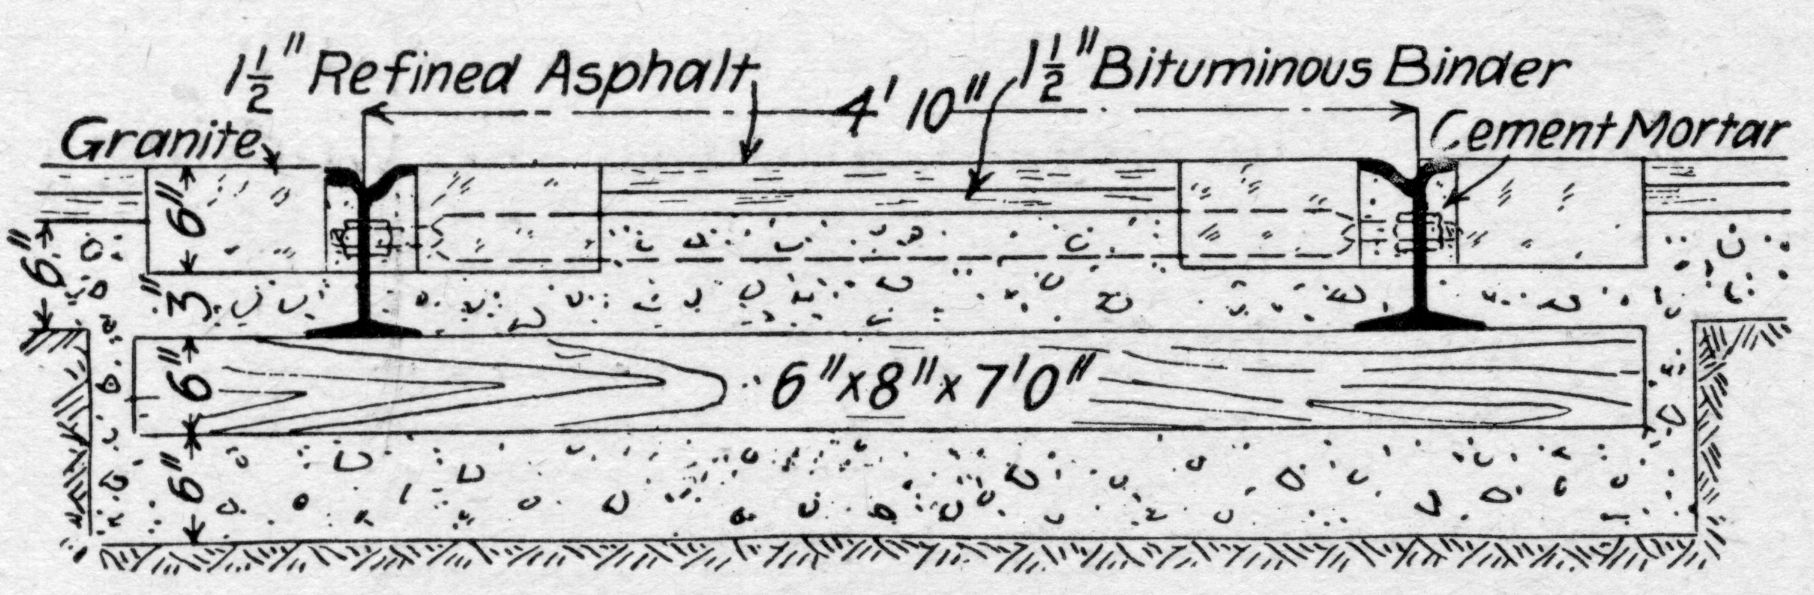 1½" Refined Asphalt
1½" Bituminous Binder
4' 10"
Granite
Cement Mortar
6"
6"
3"
6"
6" x 8" x 7'0"
6"